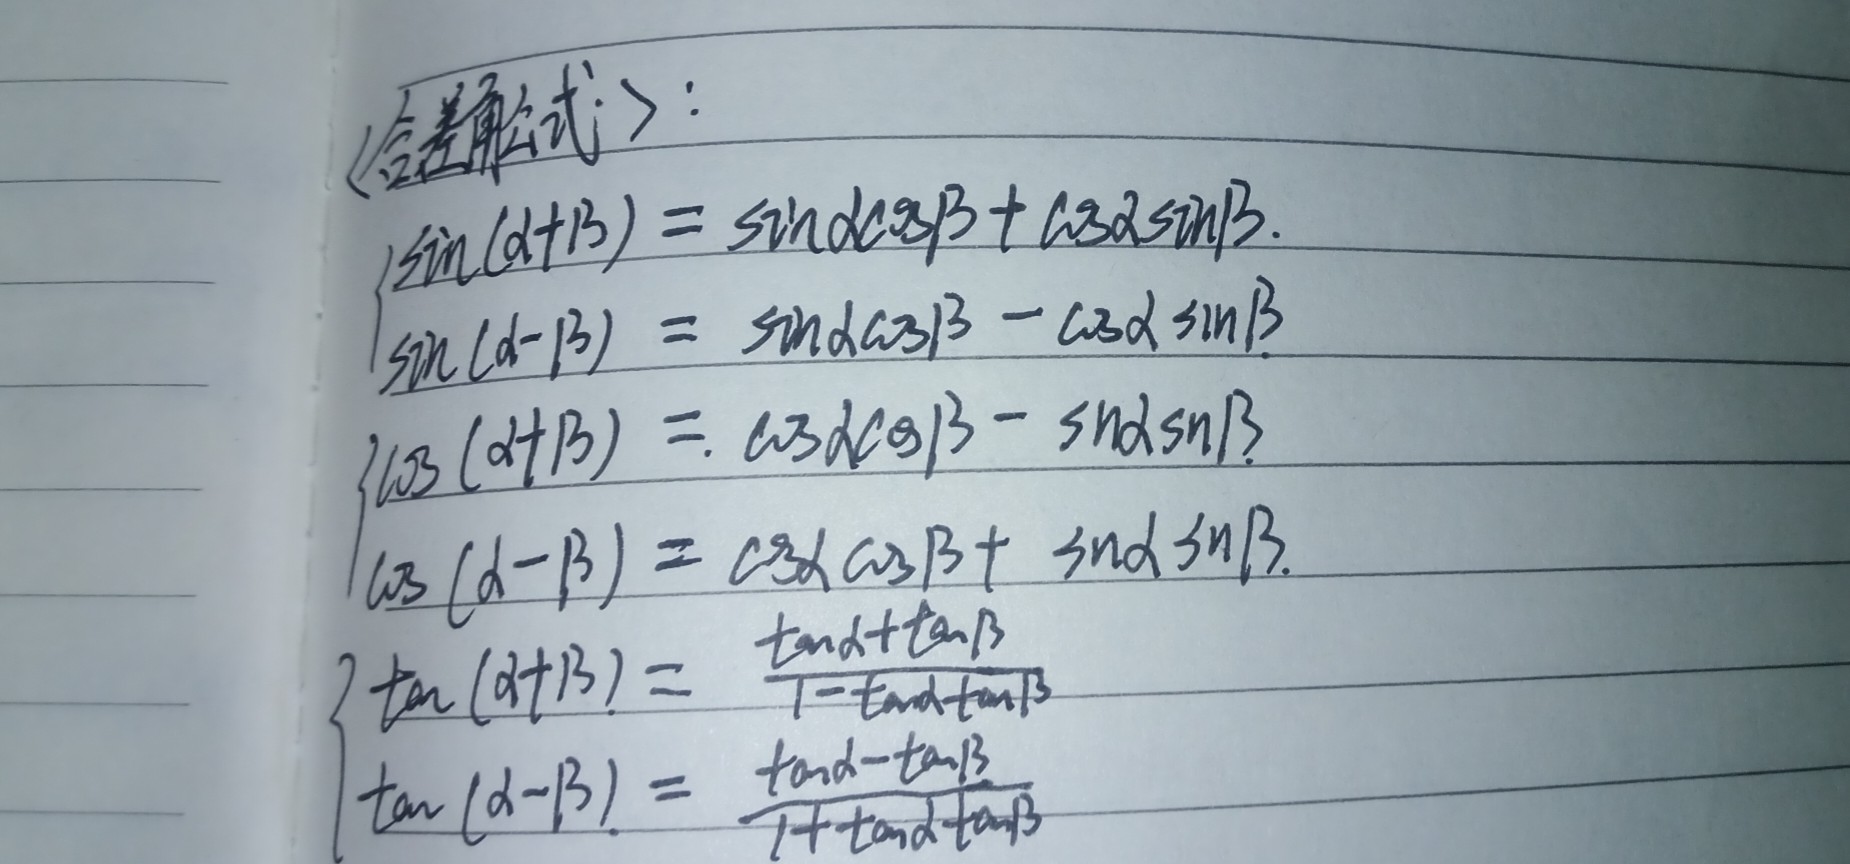 <合差角公式>:
sin(α+β) = sinαcosβ + cosαsinβ.
sin(α-β) = sinαcosβ - cosαsinβ.
cos(α+β) = cosαcosβ - snαsnβ.
cos(α-β) = cosαcosβ + snαsnβ.
tan(α+β) = \frac{tanα+tanβ}{1-tanαtanβ}
tan(α-β) = \frac{tanα-tanβ}{1+tanαtanβ}